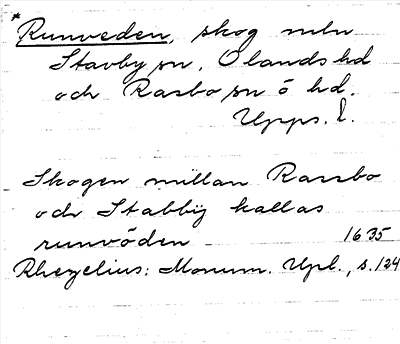 *Runveden, skog mln
Stavby sn, Olands hd
och Rasbo sn o hd.
Upps. l.
Skogen millan Rassbo
och Stabbÿ kallas
runvöden 1635
Rhezelius: Monum. Upl., s. 124